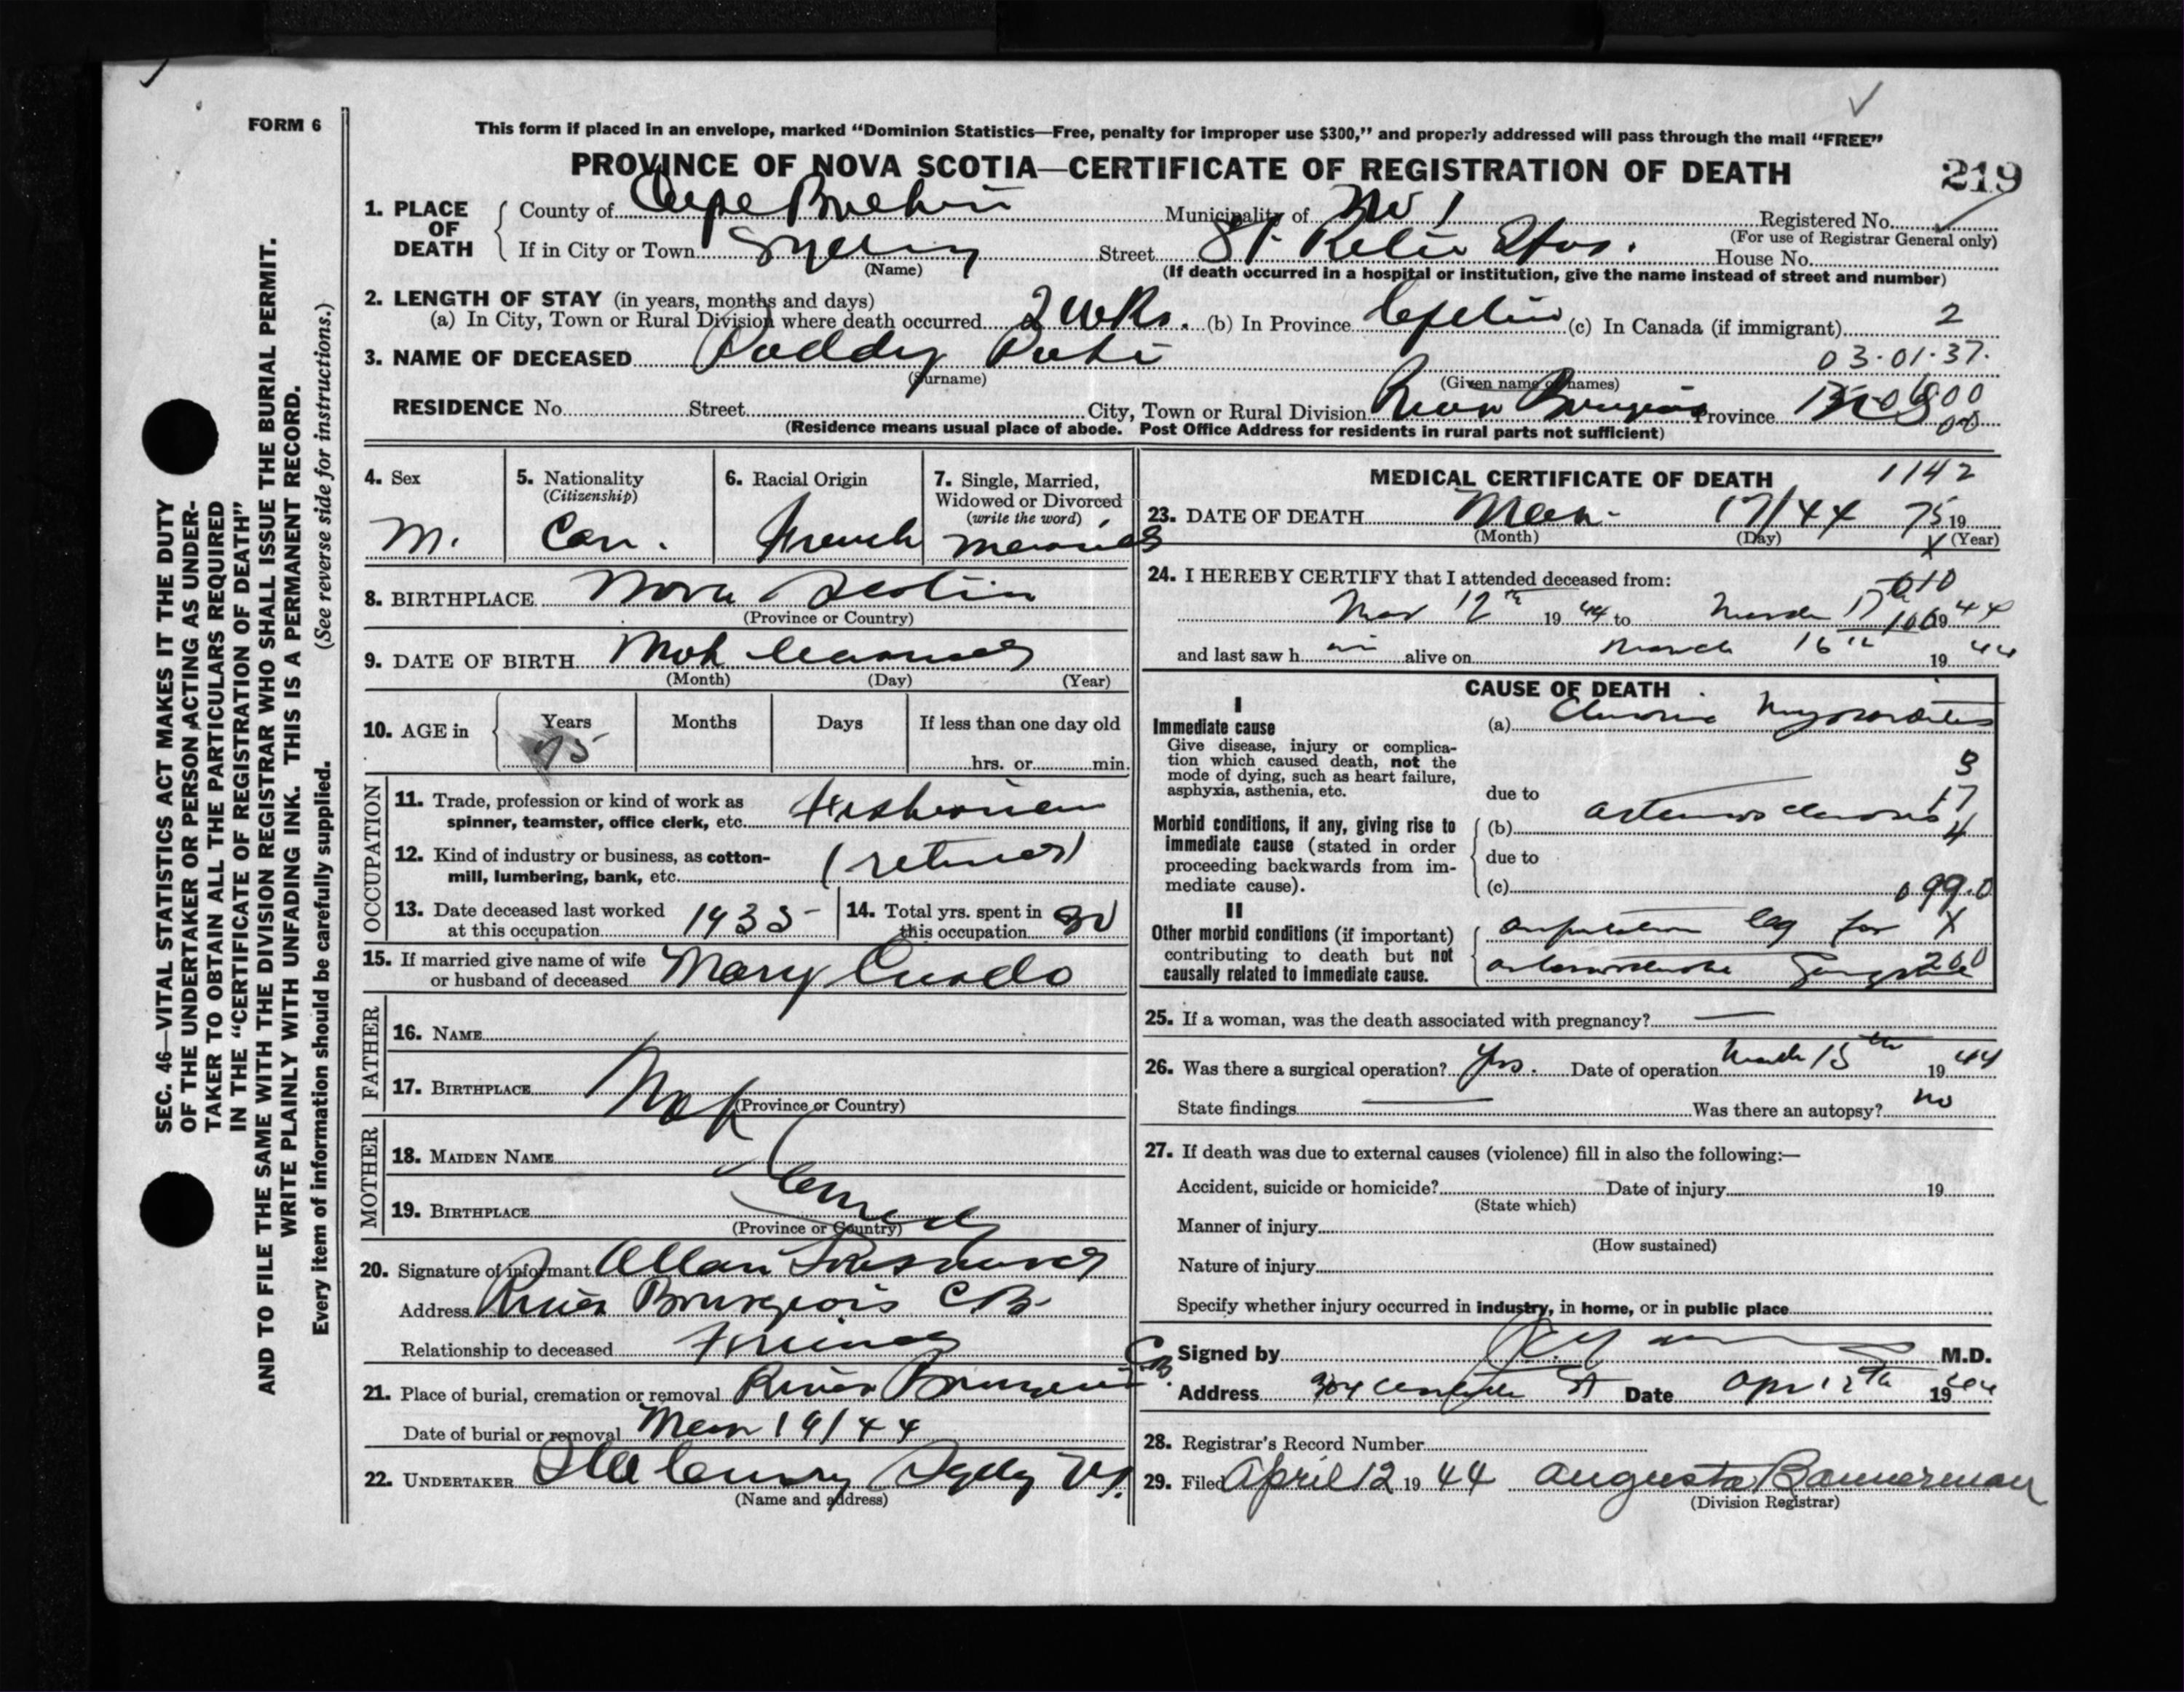 FORM 6
This form if placed in an envelope, marked “Dominion Statistics—Free, penalty for improper use $300,” and properly addressed will pass through the mail “FREE”
PROVINCE OF NOVA SCOTIA—CERTIFICATE OF REGISTRATION OF DEATH
219
1. PLACE OF DEATH
County of Cape Breton Municipality of No 1 Registered No.
(For use of Registrar General only)
If in City or Town Sydney Street St. Ritas Hos. House No.
(Name) (If death occurred in a hospital or institution, give the name instead of street and number)
2. LENGTH OF STAY (in years, months and days)
(a) In City, Town or Rural Division where death occurred 2 wks. (b) In Province Lifetime (c) In Canada (if immigrant) 2
3. NAME OF DECEASED
03·01·37·
(Surname) (Given name or names)
RESIDENCE No. Street City, Town or Rural Division River Bourgeois Province N S
(Residence means usual place of abode. Post Office Address for residents in rural parts not sufficient)
SEC. 46—VITAL STATISTICS ACT MAKES IT THE DUTY
OF THE UNDERTAKER OR PERSON ACTING AS UNDER-
TAKER TO OBTAIN ALL THE PARTICULARS REQUIRED
IN THE “CERTIFICATE OF REGISTRATION OF DEATH”
AND TO FILE THE SAME WITH THE DIVISION REGISTRAR WHO SHALL ISSUE THE BURIAL PERMIT.
WRITE PLAINLY WITH UNFADING INK. THIS IS A PERMANENT RECORD.
Every item of information should be carefully supplied. (See reverse side for instructions.)
4. Sex
M.
5. Nationality
(Citizenship)
Can.
6. Racial Origin
French
7. Single, Married,
Widowed or Divorced
(write the word)
Married
8. BIRTHPLACE Nova Scotia
(Province or Country)
9. DATE OF BIRTH Not learned
(Month) (Day) (Year)
10. AGE in
Years Months Days If less than one day old
75 hrs. or min.
OCCUPATION
11. Trade, profession or kind of work as
spinner, teamster, office clerk, etc. Fisherman
12. Kind of industry or business, as cotton-
mill, lumbering, bank, etc. (retired)
13. Date deceased last worked
at this occupation 1935
14. Total yrs. spent in
this occupation
15. If married give name of wife
or husband of deceased Mary
FATHER
16. NAME
17. BIRTHPLACE Not
(Province or Country)
MOTHER
18. MAIDEN NAME
19. BIRTHPLACE learned
(Province or Country)
20. Signature of informant Allan
Address River Bourgeois C B
Relationship to deceased Friend
21. Place of burial, cremation or removal River Bourgeois C.B.
Date of burial or removal Mar 19/44
22. UNDERTAKER Sydney N.S.
(Name and address)
MEDICAL CERTIFICATE OF DEATH 1142
23. DATE OF DEATH Mar 17/44 75 19
(Month) (Day) (Year)
24. I HEREBY CERTIFY that I attended deceased from:
010
Mar 12th 19 44 to March 17 19 44
and last saw h im alive on March 16th 19 44
CAUSE OF DEATH
I
Immediate cause
Give disease, injury or complica-
tion which caused death, not the
mode of dying, such as heart failure,
asphyxia, asthenia, etc.
(a) Chronic Myocarditis
due to
Morbid conditions, if any, giving rise to
immediate cause (stated in order
proceeding backwards from im-
mediate cause).
(b) arteriosclerosis
due to
(c)
3
17
4
099.0
II
Other morbid conditions (if important)
contributing to death but not
causally related to immediate cause.
amputation leg for X
arteriosclerotic Gangrene 200
25. If a woman, was the death associated with pregnancy?
26. Was there a surgical operation? Yes. Date of operation March 15th 19 44
State findings Was there an autopsy? no
27. If death was due to external causes (violence) fill in also the following:—
Accident, suicide or homicide? Date of injury 19
(State which)
Manner of injury
(How sustained)
Nature of injury
Specify whether injury occurred in industry, in home, or in public place
Signed by M.D.
Address St Date Apr 12th 19 44
28. Registrar's Record Number
29. Filed April 12 19 44 Augusta Bannerman
(Division Registrar)